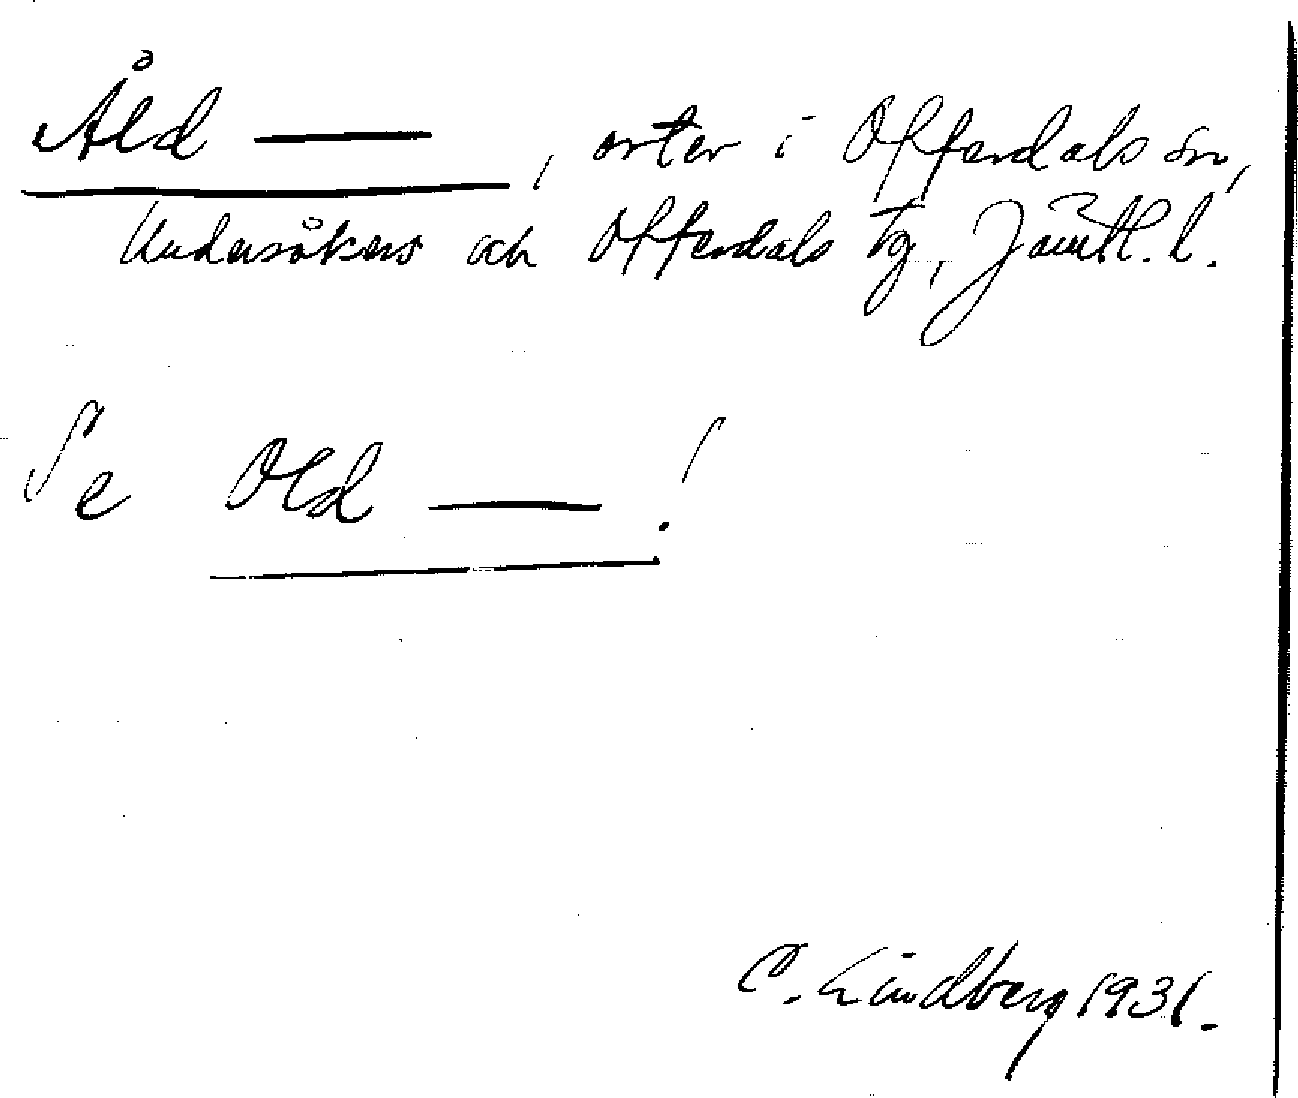 Åld ——, orter i Offerdals sn,
Undersåkers och Offerdals tg, Jämtl. l.
Se Old ——!
C. Lindberg 1931.